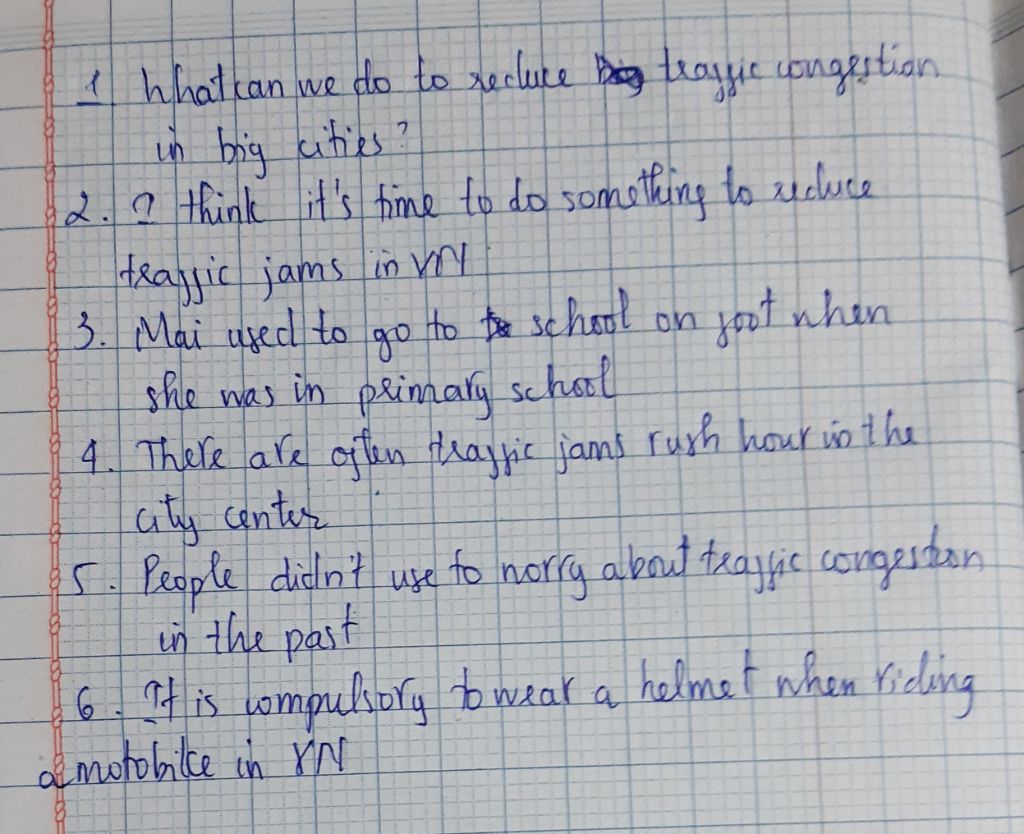 1 What can we do to reduce traffic congestion
in big cities?
2. I think it's time to do something to reduce
traffic jams in VN
3. Mai used to go to school on foot when
she was in primary school
4. There are often traffic jams rush hour in the
city center
5. People didn't use to worry about traffic congestion
in the past
6. It is compulsory to wear a helmet when riding
a motobike in VN